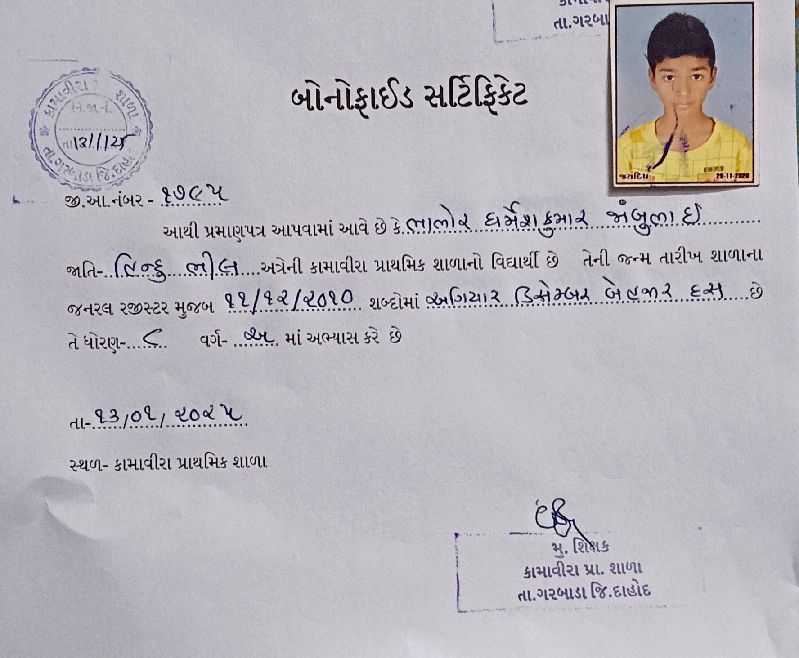 તા.ગરબાડા
બોનોફાઈડ સર્ટિફિકેટ
કામાવીરા શાળા
તા.ગરબાડા જિ.દાહોદ
તા 13/1/25
જયદિપ 29-11-2020
જી.આ.નંબર - ૧૭૯૫
આથી પ્રમાણપત્ર આપવામાં આવે છે કે. ભાભોર ધર્મેશકુમાર જંબુભાઈ
જાતિ- હિન્દુ ભીલ અત્રેની કામાવીરા પ્રાથમિક શાળાનો વિદ્યાર્થી છે તેની જન્મ તારીખ શાળાના
જનરલ રજીસ્ટર મુજબ ૧૧/૧૨/૨૦૧૦ શબ્દોમાં અગિયાર ડિસેમ્બર બે હજાર દસ છે
તે ધોરણ- ૮ વર્ગ- અ માં અભ્યાસ કરે છે
તા- ૧૩/૦૧/૨૦૨૫
સ્થળ- કામાવીરા પ્રાથમિક શાળા
મુ. શિક્ષક
કામાવીરા પ્રા. શાળા
તા.ગરબાડા જિ.દાહોદ